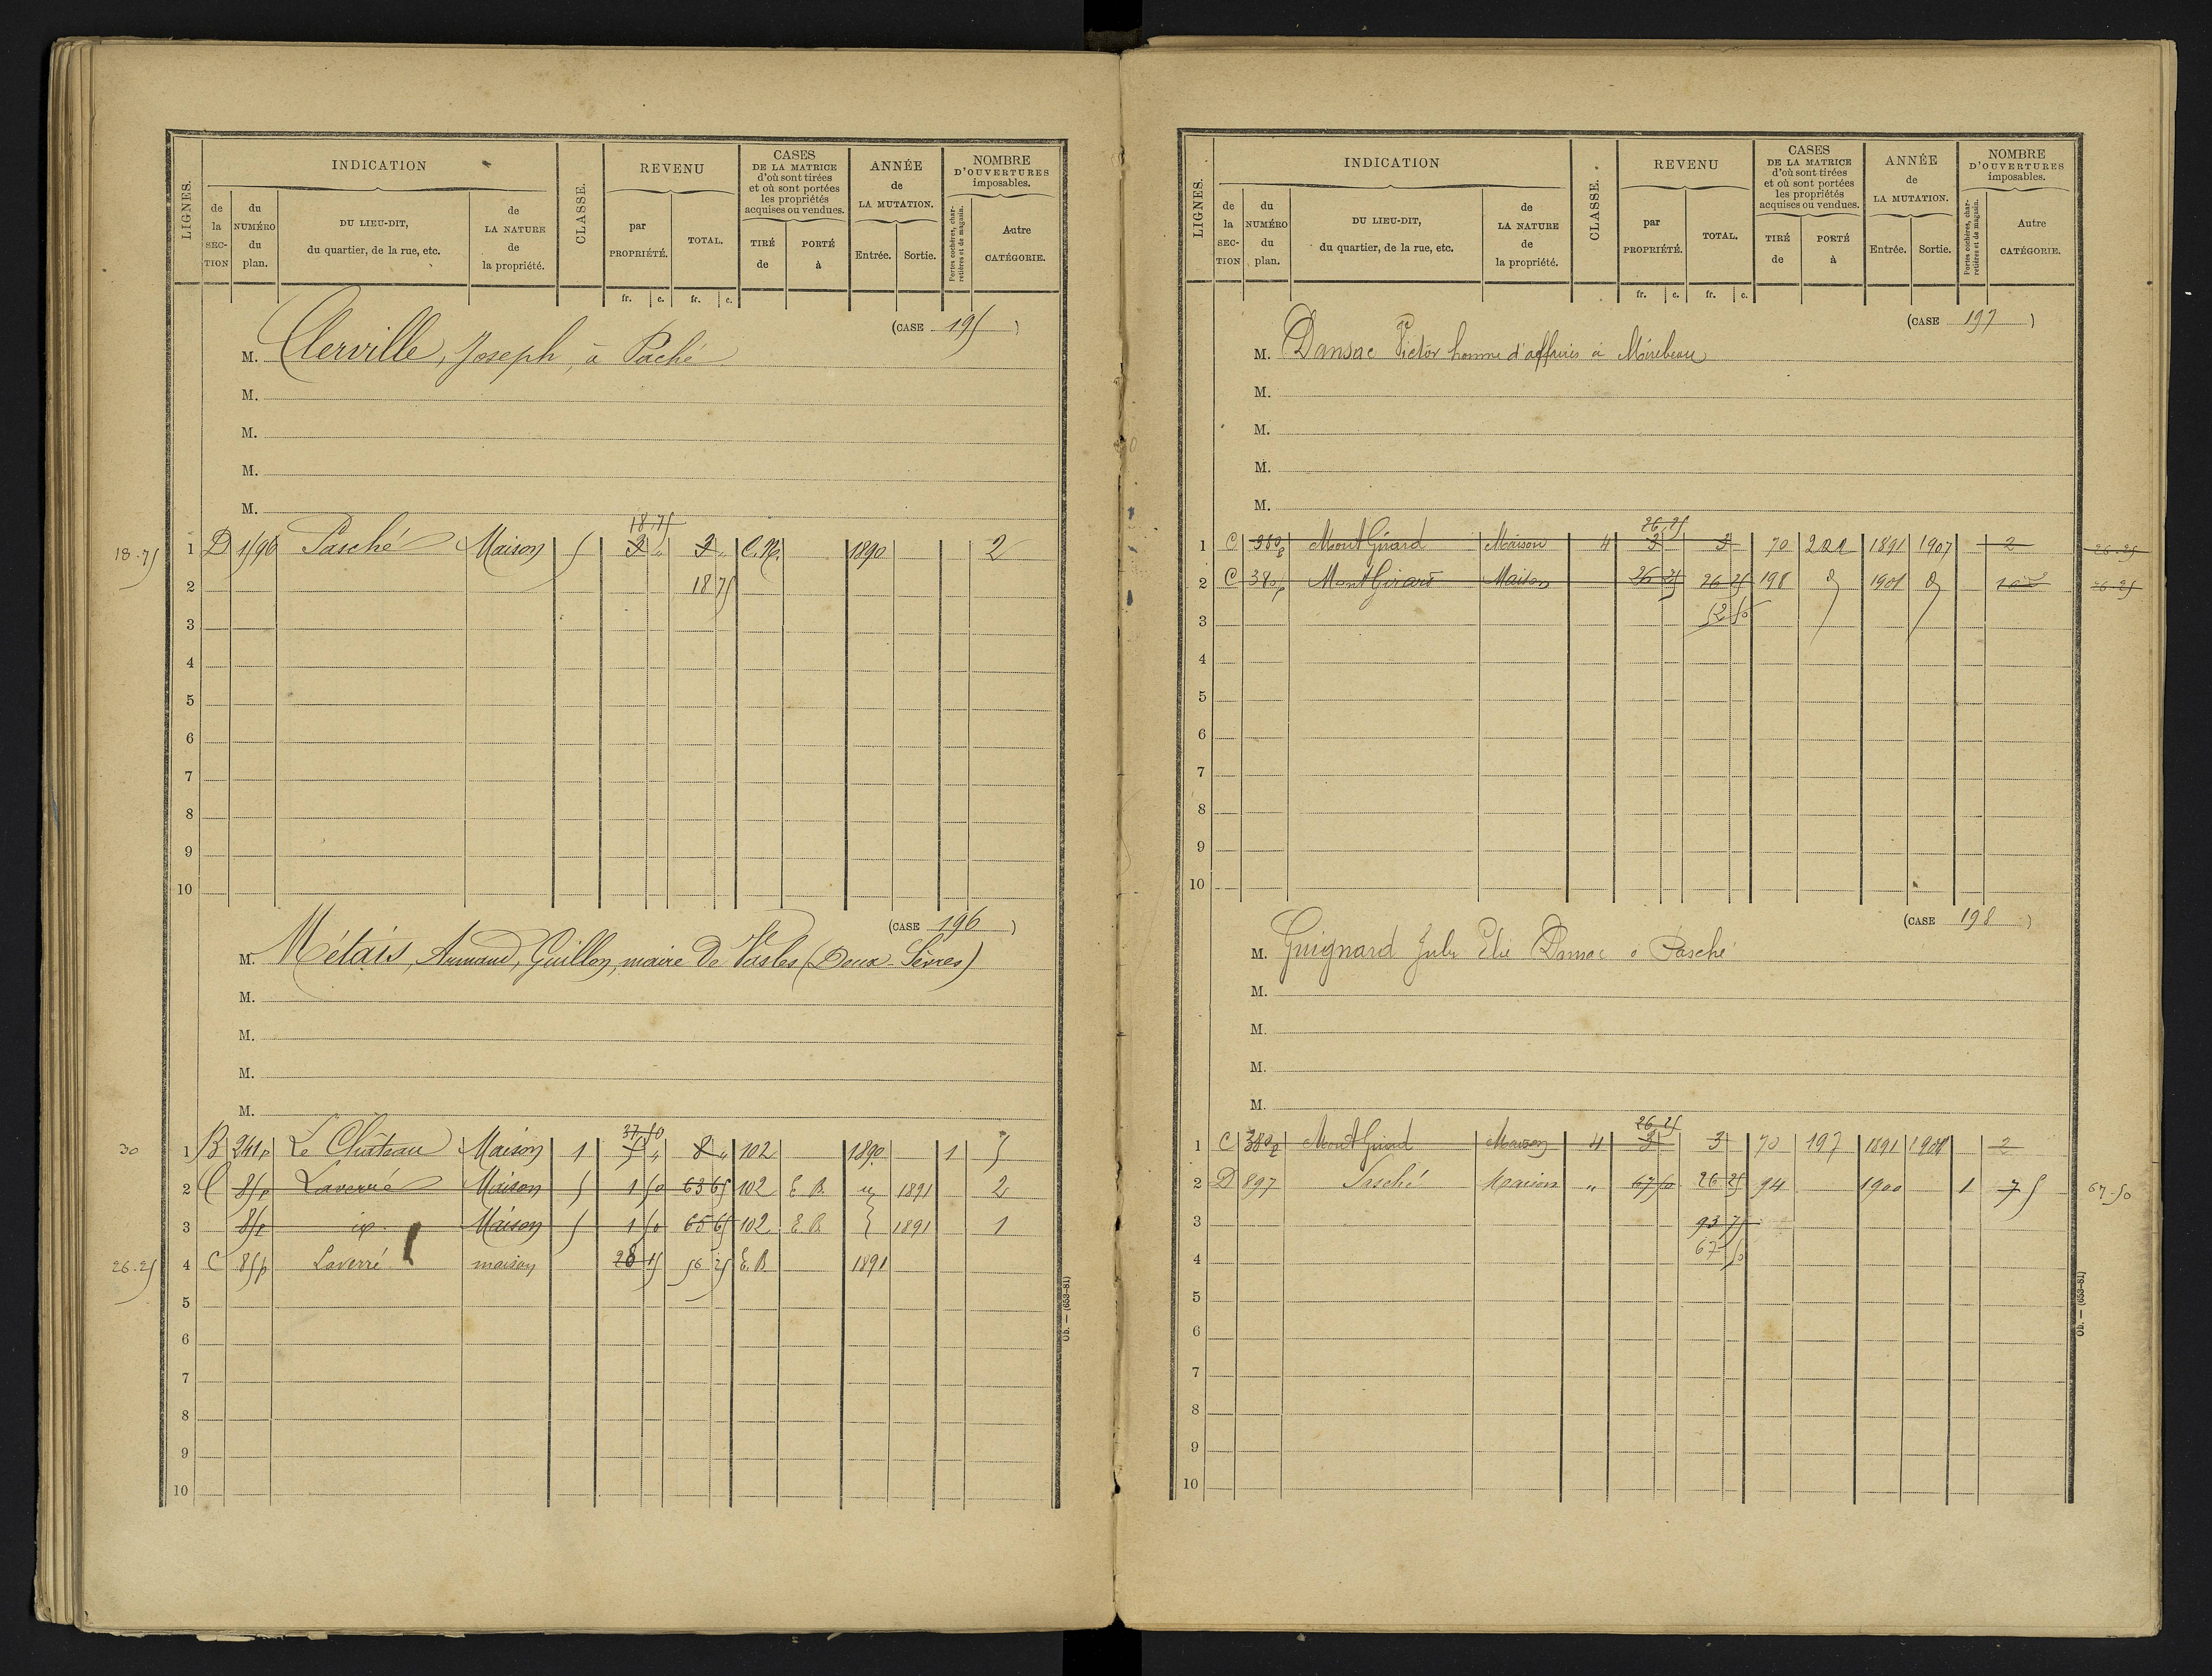 LIGNES. INDICATION CLASSE. REVENU CASES DE LA MATRICE d'où sont tirées et où sont portées les propriétés acquises ou vendues. ANNÉE de LA MUTATION. NOMBRE D'OUVERTURES imposables.
de la SECTION du NUMÉRO du plan. DU LIEU-DIT, du quartier, de la rue, etc. de LA NATURE de la propriété. par PROPRIÉTÉ. TOTAL. TIRÉ de PORTÉ à Entrée. Sortie. Portes cochères, charretières et de magasin. Autre CATÉGORIE.
fr. c. fr. c.
(CASE 195)
M. Clerville, Joseph, à Paché
M.
M.
M.
M.
18.75
18.75 1 D 1596 Pasché Maison 5 3 " 3 " C.N. 1890 2
2 18 75
3
4
5
6
7
8
9
10
(CASE 196)
M. Métais, Armand, Guillon, maire de Vasles (Deux-Sèvres)
M.
M.
M.
M.
37 50
30 1 B 241p Le Château Maison 1 5 " 8 " 102 1890 1 5
2 C 85p Laverré Maison 5 1 50 63 65 102 E.B. 1891 2
3 85p Maison 5 1 50 65 65 102 E.B. 1891 1
26.25 4 C 85p Laverré maison 56 25 E.B. 1891
5
6
7
8
9
10
Ob. — (653-81)
LIGNES. INDICATION CLASSE. REVENU CASES DE LA MATRICE d'où sont tirées et où sont portées les propriétés acquises ou vendues. ANNÉE de LA MUTATION. NOMBRE D'OUVERTURES imposables.
de la SECTION du NUMÉRO du plan. DU LIEU-DIT, du quartier, de la rue, etc. de LA NATURE de la propriété. par PROPRIÉTÉ. TOTAL. TIRÉ de PORTÉ à Entrée. Sortie. Portes cochères, charretières et de magasin. Autre CATÉGORIE.
fr. c. fr. c.
(CASE 197)
M. Dansac Victor homme d'affaires à Mirebeau
M.
M.
M.
M.
26,25
1 C 380p Mont Girard Maison 4 3 3 70 1891 1907 2 26.25
2 C 380p Mont Girard Maison 26 25 26 25 198 1901 26.25
3 52 50
4
5
6
7
8
9
10
(CASE 198)
M. Guignard Elie Dansac à Pasché
M.
M.
M.
M.
26 25
1 C 380p Mont Girard Maison 4 3 3 70 197 1891 1901 2
2 D 897 Pasché Maison " 67 50 26 25 94 1900 1 7 5 67.50
3 93 75
4 67 50
5
6
7
8
9
10
Ob. — (653-81)